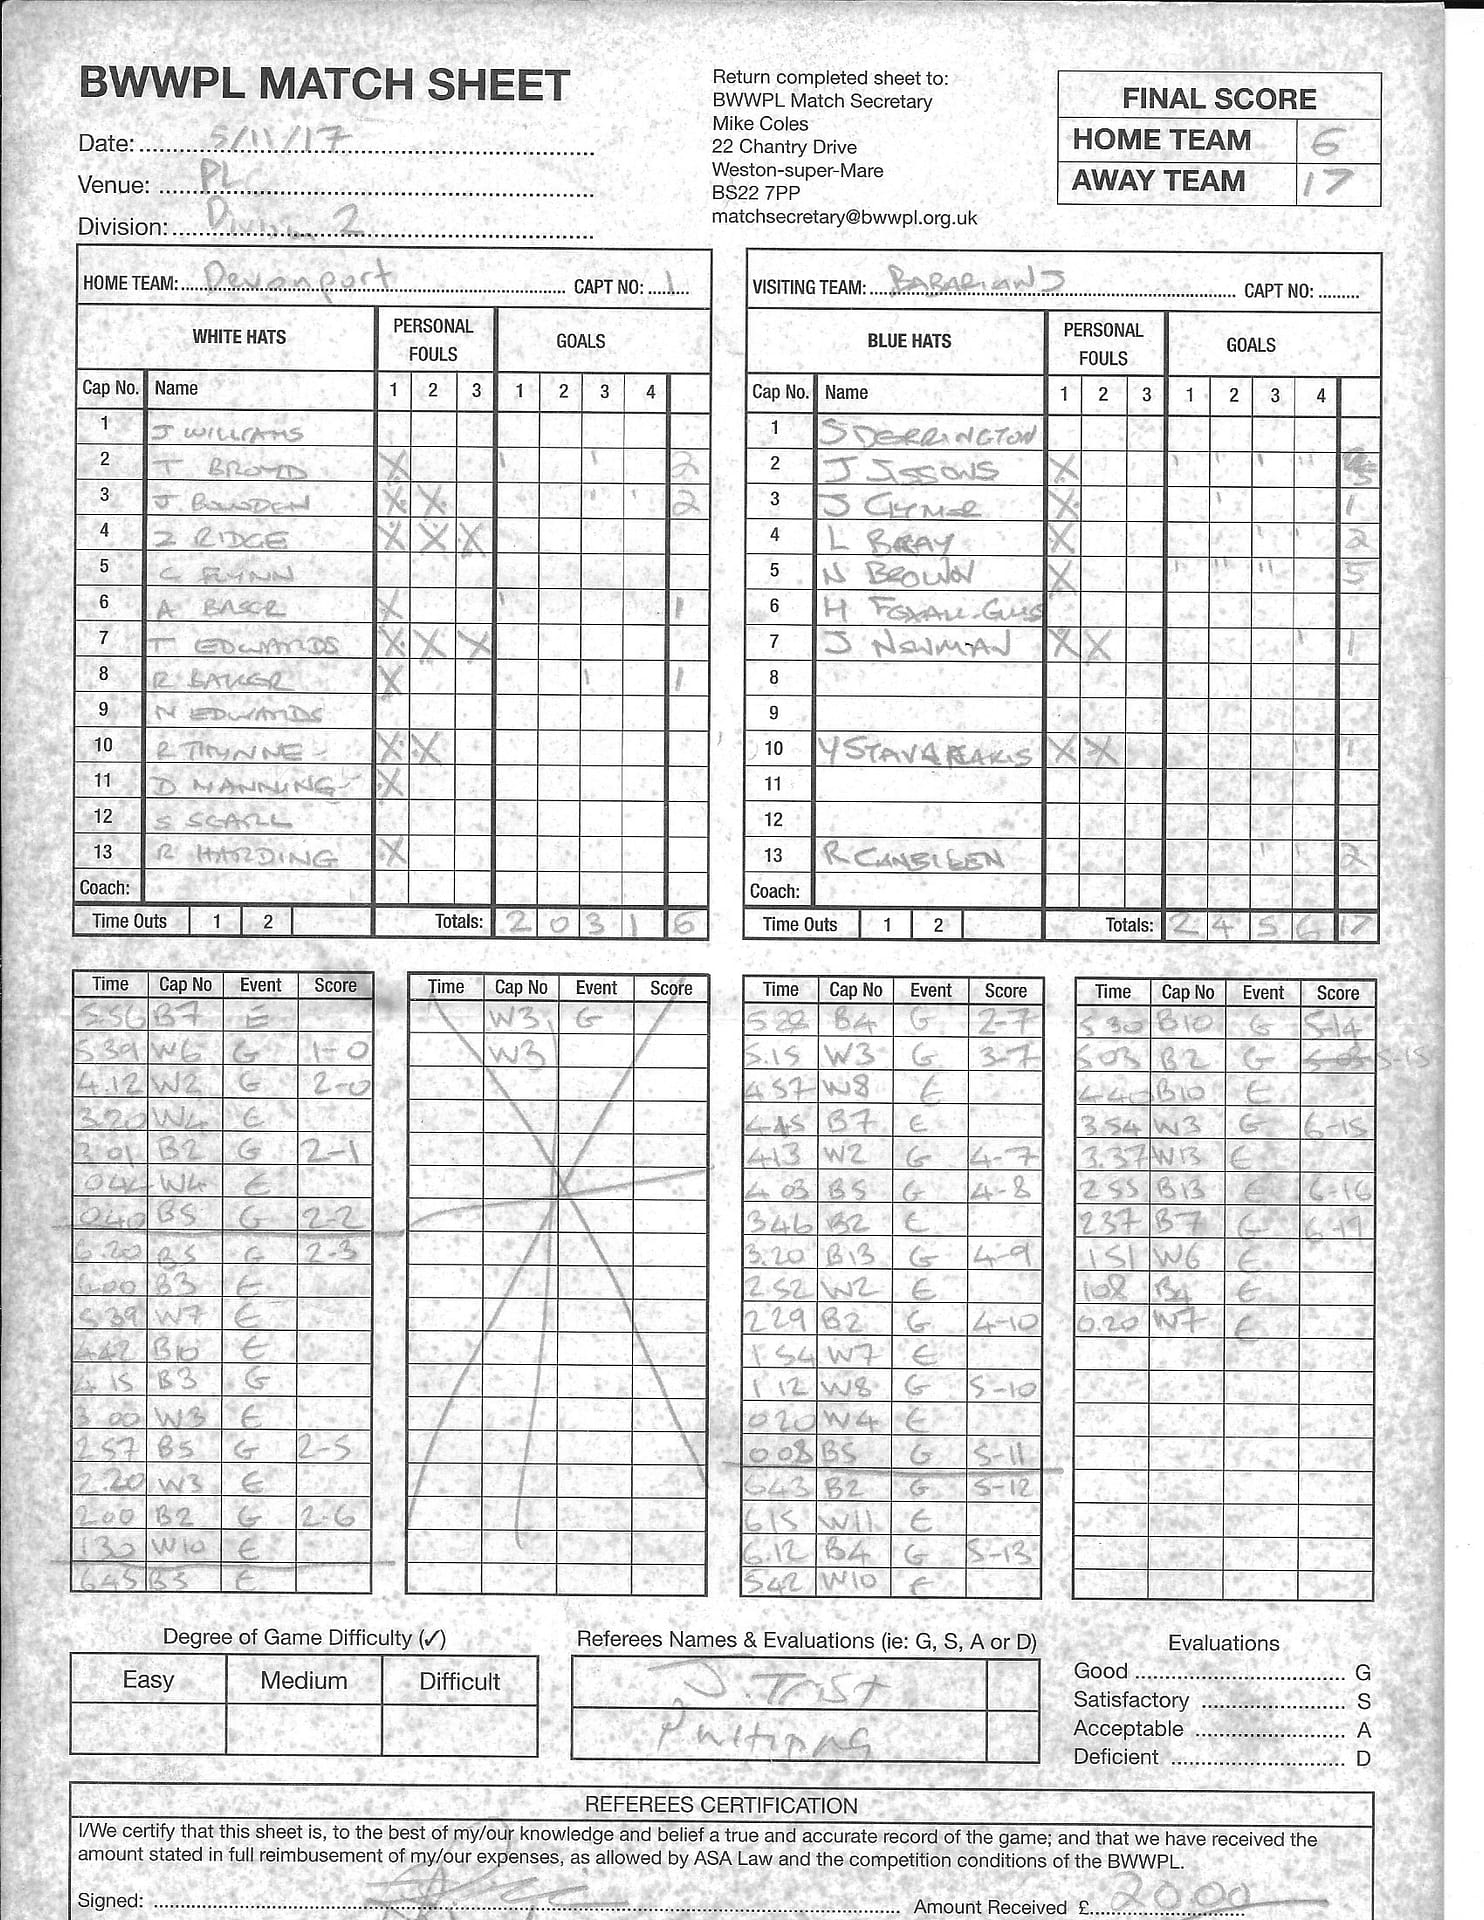 BWWPL MATCH SHEET
Date: 5/11/17
Venue: PL
Division: Division 2
Return completed sheet to:
BWWPL Match Secretary
Mike Coles
22 Chantry Drive
Weston-super-Mare
BS22 7PP
matchsecretary@bwwpl.org.uk
FINAL SCORE
HOME TEAM 6
AWAY TEAM 17
HOME TEAM: Devonport CAPT NO: 1
WHITE HATS PERSONAL FOULS GOALS
Cap No. Name 1 2 3 1 2 3 4
1 J WILLIAMS
2 T BROYD X ' ' 2
3 J BOWDEN X X '' ' 2
4 Z RIDGE X X X
5 C FLYNN
6 A BAKER X ' 1
7 T EDWARDS X X X
8 R BAKER X ' 1
9 N EDWARDS
10 R THYNNE X X
11 D MANNING X
12 S SCALL
13 R HARDING X
Coach:
Time Outs 1 2 Totals: 2 0 3 1 6
VISITING TEAM: BABARIANS CAPT NO:
BLUE HATS PERSONAL FOULS GOALS
Cap No. Name 1 2 3 1 2 3 4
1 S DERRINGTON
2 J SISSONS X ' ' ' '' 5
3 J CLYMER X ' 1
4 L BRAY X ' ' 2
5 N BROWN X ' '' '' 5
6 H FOXALL-
7 J NEWMAN X X ' 1
8
9
10 Y STAVARAKIS X X ' 1
11
12
13 R ' ' 2
Coach:
Time Outs 1 2 Totals: 2 4 5 6 17
Time Cap No Event Score
5.56 B7 E
5.39 W6 G 1-0
4.12 W2 G 2-0
3.20 W4 E
3 01 B2 G 2-1
044 W4 E
040 B5 G 2-2
6.20 B5 G 2-3
6.00 B3 E
5.39 W7 E
4.42 B10 E
4 15 B3 G
3 00 W3 E
2 57 B5 G 2-5
2.20 W3 E
2.00 B2 G 2-6
130 W10 E
645 B5 E
Time Cap No Event Score
W3 G
W3
Time Cap No Event Score
5 22 B4 G 2-7
5.15 W3 G 3-7
4 57 W8 E
4.45 B7 E
413 W2 G 4-7
4 03 B5 G 4-8
346 B2 E
3.20 B13 G 4-9
2 52 W2 E
2 29 B2 G 4-10
1 54 W7 E
1 12 W8 G 5-10
020 W4 E
0 08 B5 G 5-11
643 B2 G 5-12
615 W11 E
6.12 B4 G 5-13
542 W10 E
Time Cap No Event Score
5 30 B10 G 5-14
5 03 B2 G 5-15
4 40 B10 E
3.54 W3 G 6-15
3.37 W13 E
2 55 B13 E 6-16
2 37 B7 G 6-17
1 51 W6 E
108 B4 E
0.20 W7 E
Degree of Game Difficulty (✓)
Easy Medium Difficult
Referees Names & Evaluations (ie: G, S, A or D)
J. Trist
Evaluations
Good G
Satisfactory S
Acceptable A
Deficient D
REFEREES CERTIFICATION
I/We certify that this sheet is, to the best of my/our knowledge and belief a true and accurate record of the game; and that we have received the
amount stated in full reimbusement of my/our expenses, as allowed by ASA Law and the competition conditions of the BWWPL.
Signed: Amount Received £ 20.00